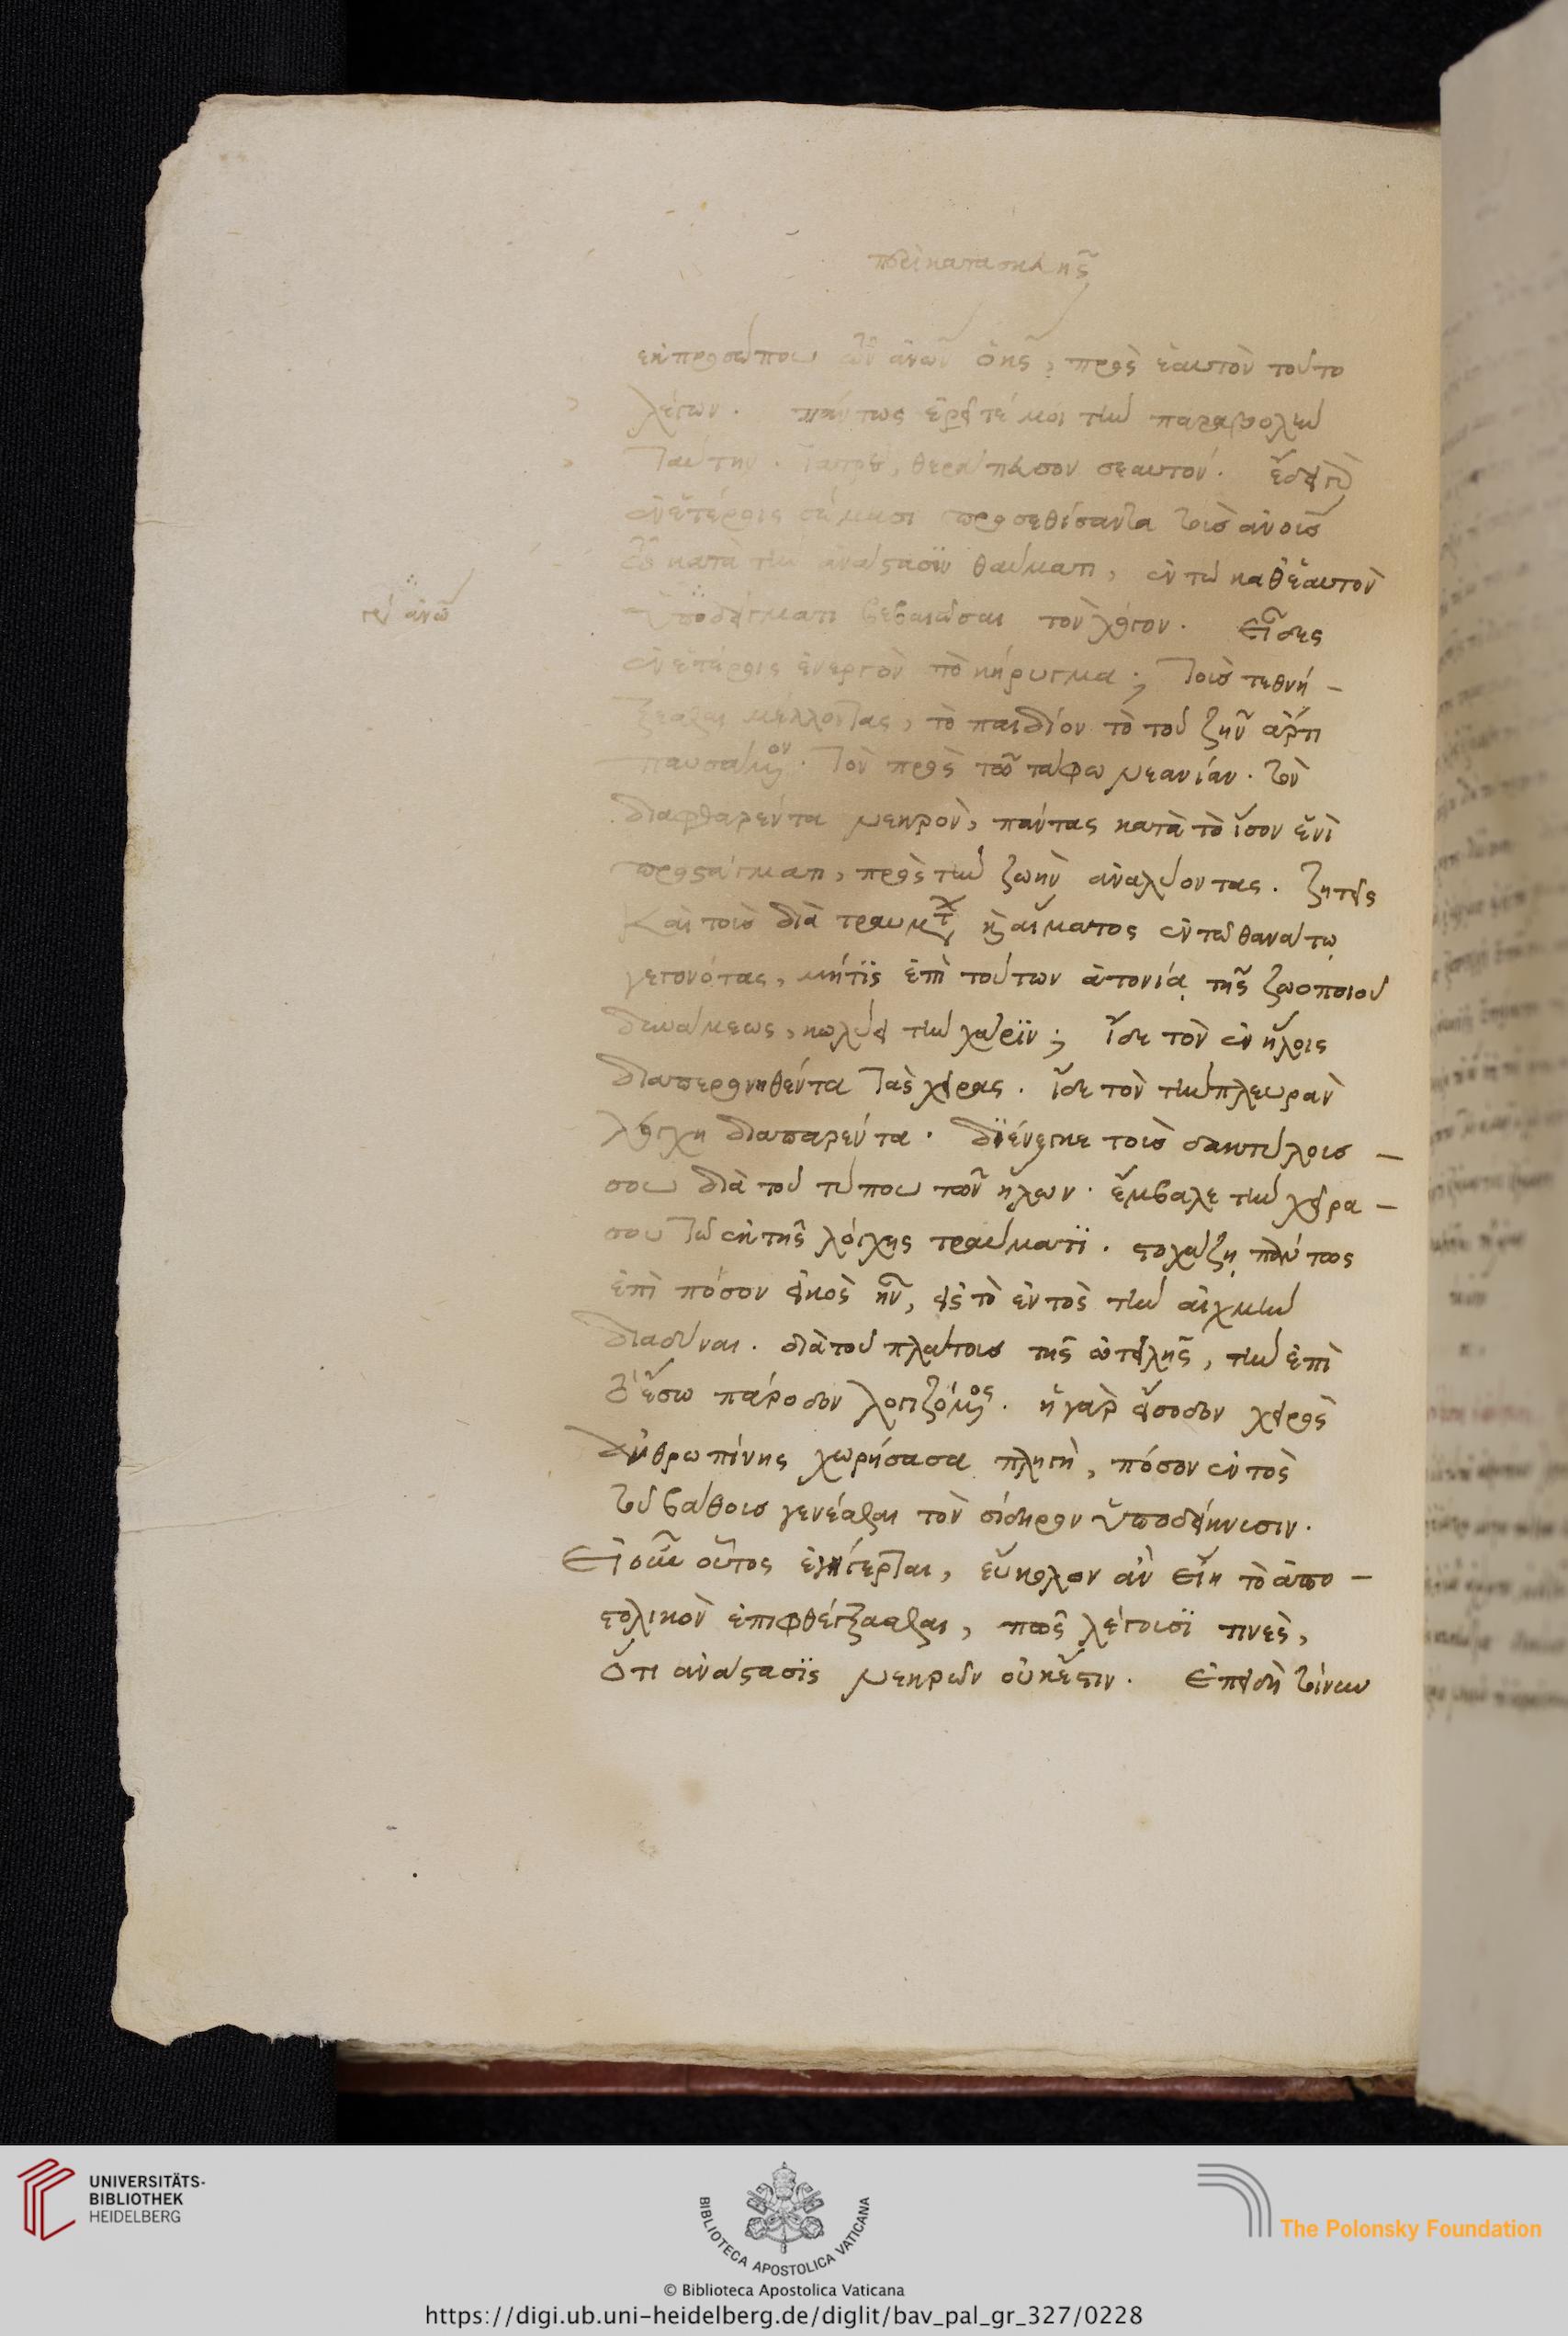 περὶ κατασκευῆς
ἐκ προσώπου τῶν ἀνων ὁ κς, πρὸς ἑαυτὸν τοῦτο
λέγων. πάντως ἐρεῖτέ μοι τὴν παραβολὴν
ταύτην. ἰατρὲ, θεράπευσον σεαυτόν. ἔδει γὰρ
ἐν ἑτέροις σώμασι προσεθίσαντα τοὺς ἀνους
τῷ κατὰ τὴν ἀνάστασϊν θαύματι, ἐν τῷ καθ' ἑαυτὸν
τῷ ἀνω
ὑποδείγματι βεβαιῶσαι τὸν λόγον. εἶδες
ἐν ἑτέροις ἐνεργὸν τὸ κήρυγμα; τοὺς τεθνή-
ξεσθαι μέλλοντας, τὸ παιδίον τὸ τοῦ ζῆν ἄρτι
παυσάμον. τὸν πρὸς τῷ τάφω νεανίαν. τὸν
διαφθαρέντα νεκρὸν, πάντας κατὰ τὸ ἴσον ἑνὶ
προστάγματι, πρὸς τὴν ζωὴν ἀναλύοντας. ζητεῖς
καὶ τοὺς διὰ τραυμτ κ αἵματος ἐν τῷ θανάτῳ
γεγονότας, μή τϊς ἐπὶ τούτων ἀτονία τῆς ζωοποιοῦ
δυνάμεως, κωλύει τὴν χάρϊν; ἴδε τὸν ἐν ἥλοις
διαπερονηθέντα τὰς χεῖρας. ἴδε τὸν τὴν πλευρὰν
λόγχη διαπαρέντα. δϊένεγκε τοὺς δακτύλους -
σου διὰ τοῦ τύπου τῶν ἥλων. ἔμβαλε τὴν χεῖρα -
σου τῷ ἐκ τῆς λόγχης τραύματϊ. στοχάζῃ πάντως
ἐπὶ πόσον εἰκὸς ἦν, εἰς τὸ ἐντὸς τὴν αἰχμὴν
διαδῦναι. διὰ τοῦ πλάτους τῆς ὠτειλῆς, τὴν ἐπὶ
τὸ ἔσω πάροδον λογιζόμος. ἡ γὰρ εἴσοδον χειρὸς
ἀνθρωπίνης χωρήσασα πληγὴ, πόσον ἐντὸς
τοῦ βάθους γενέσθαι τὸν σίδηρον ὑποδείκνυσιν.
Εἰ οὖν οὗτος ἐγήγερται, εὔκολον ἂν εἴη τὸ ἀπο-
στολικὸν ἐπιφθέγξασθαι, πῶς λέγουσϊ τινὲς,
ὅτι ἀνάστασϊς νεκρῶν οὐκ ἔστιν. Ἐπειδὴ τοίνυν
UNIVERSITÄTS-
BIBLIOTHEK
HEIDELBERG
BIBLIOTECA APOSTOLICA VATICANA
The Polonsky Foundation
© Biblioteca Apostolica Vaticana
https://digi.ub.uni-heidelberg.de/diglit/bav_pal_gr_327/0228